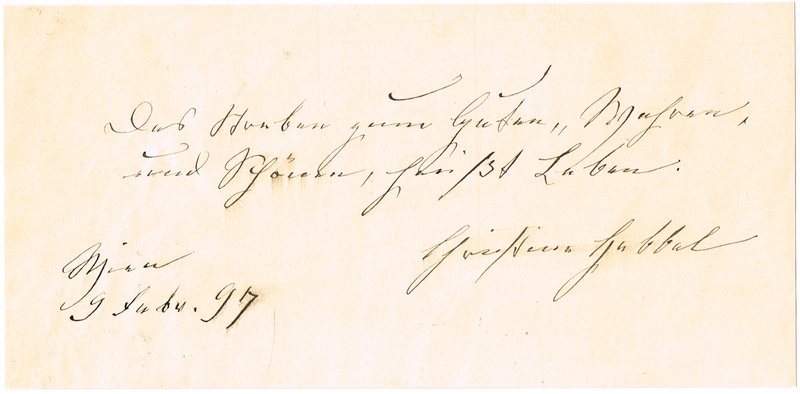 Das Streben zum Guten, Wahren,
und Schönen, heißt Leben.
Christine Hebbel
Wien
9 Febr. 97